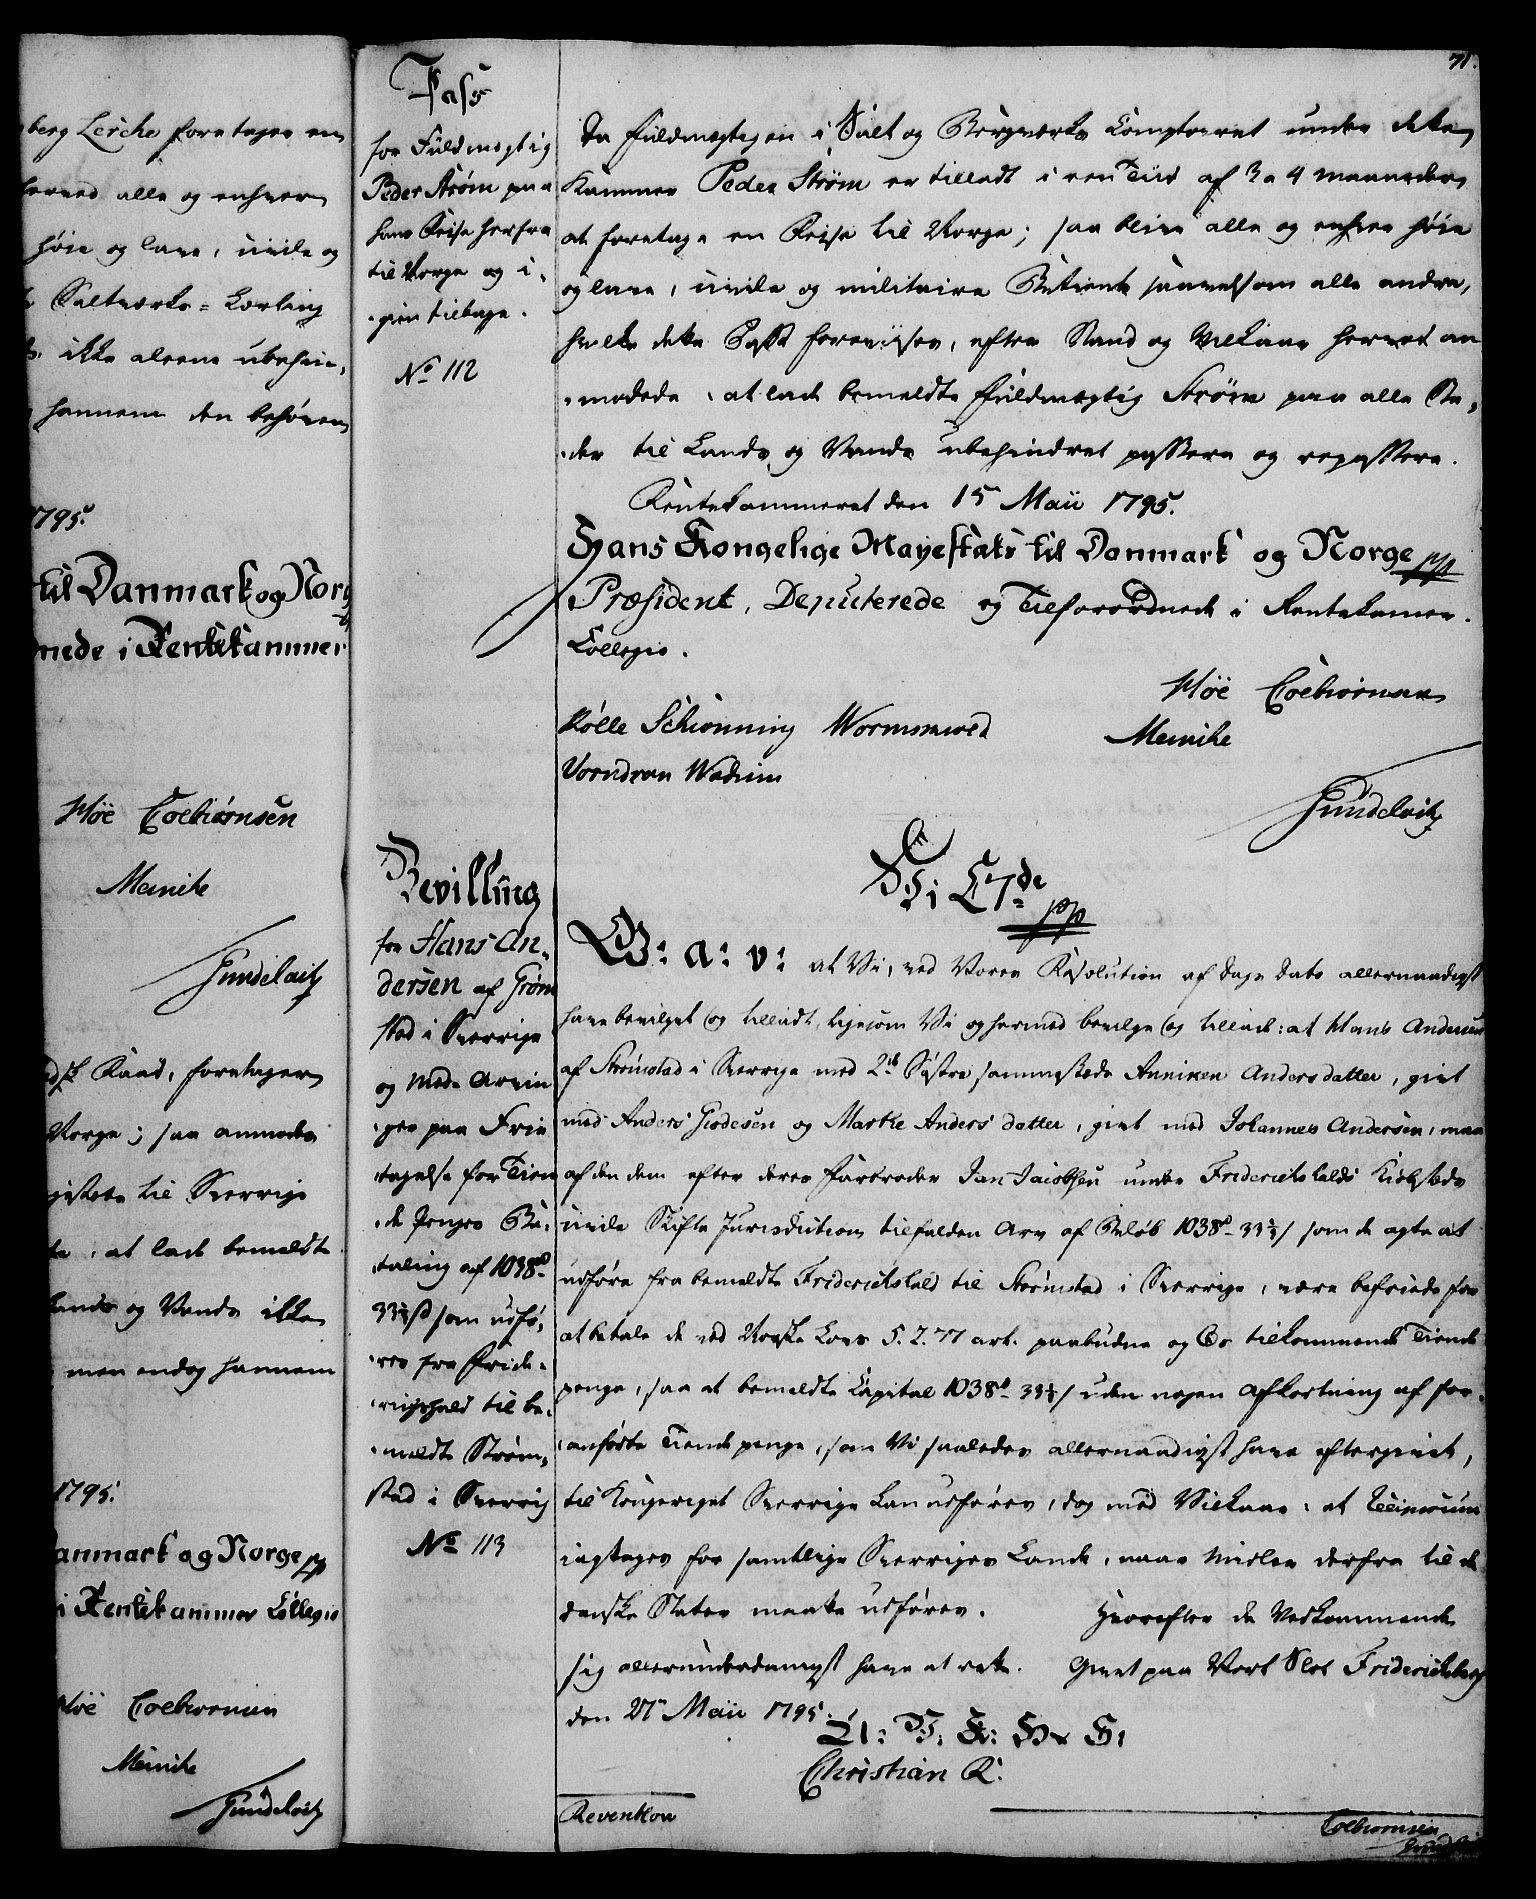 berg Lerche foretager en
herved alle og enhver
høie og lave, civile og
Saltværks-Lærling
ikke alene ubehin-
hannem den behøven
1795.
til Danmark og Norg
nede i Rentekammer
Moë Colbiørnsen
Meinike
Gundelach
Raad, foretager
Norge; saa anmodes
til Sverrige
at lade bemeldte
Lands og Vands ikke
men endog hannem
1795.
anmark og Norge pp
i Rentekammer Collegio
Moë Colbiørnsen
Meinike
Gundelach
71.
Pass
for Fuldmægtig
Peder Strøm paa
hans Reise herfra
til Norge og i-
gien tilbage.
No 112
Da Fuldmægtigen i Salt og Bergværks Comptoiret under dette
Kammer Peder Strøm er tilladt i een Tiid af 3 a 4 maaneder
at foretage en Reise til Norge; saa blive alle og enhver høie
og lave, civile og militaire Betiente saavelsom alle andre,
hvilke dette Pass forevises, efter Stand og Vilkaar herved an
modede, at lade bemeldte Fuldmægtig Strøm paa alle Ste-
der til Lands og Vands ubehindret passere og repassere.
Rentekammeret den 15 Maii 1795.
Hans Kongelige Mayestæts til Danmark og Norge pp
Præsident, Deputerede og Tilforordnede i Rentekamer
Collegio.
Moë Colbiørnsen
Kølle Schiønning Wormskiold Meinike
Vorndran Wadum
Gundelach
Bevilling
for Hans An-
dersen af Strøm
stad i Sverrige
og Med-Arvin
ger paa Frie
tagelse for Tien
de Penges Be-
taling af 1038 rd
33½ s som udfø-
res fra Fride-
richshald til be-
meldte Strøm-
stad i Sverrig
No 113
V. C. 7de pp
G: a: v: at Vi, ved Vores Resolution af Dags Dato allernaadigst
have bevilget og tilladt, ligesom Vi og hermed bevilge og tillade: at Hans Andersen
af Strømstad i Sverrige med 2de Søstre sammesteds Anniken Andersdatter, givt
med Anders Giedesen og Marthe Andersdatter, givt med Johannes Andersen, maa
af den dem efter deres Farbroder Jan Jacobsen under Friderichshalds Kiøbsteds
civile Skifte Jurisdiction tilfalden Arv af Beløb 1038 rd 33½ s som de agte at
udføre fra bemeldte Friderichshald til Strømstad i Sverrige, være befriede for
at betale de ved Norske Lovs 5. 2. 77 art. paabudne og Os tilkommende Tiende
penge, saa at bemeldte Capital 1038 rd 33½ s uden nogen afkortning af for-
anførte Tiende penge, som Vi saaledes allernaadigst have eftergivet,
til Kongeriget Sverrige kan udføres, dog med Vilkaar: at Reciprocum
iagttages for samtlige Sverriges Lande, naar Midler derfra til de
danske Stater maatte udføres. Hvorefter de Vedkommende
sig allerunderdanigst have at rette. Givet paa Vort Slot Friderichsberg
den 27 Maii 1795.
Christian R.
Reventlow
Colbiørnsen